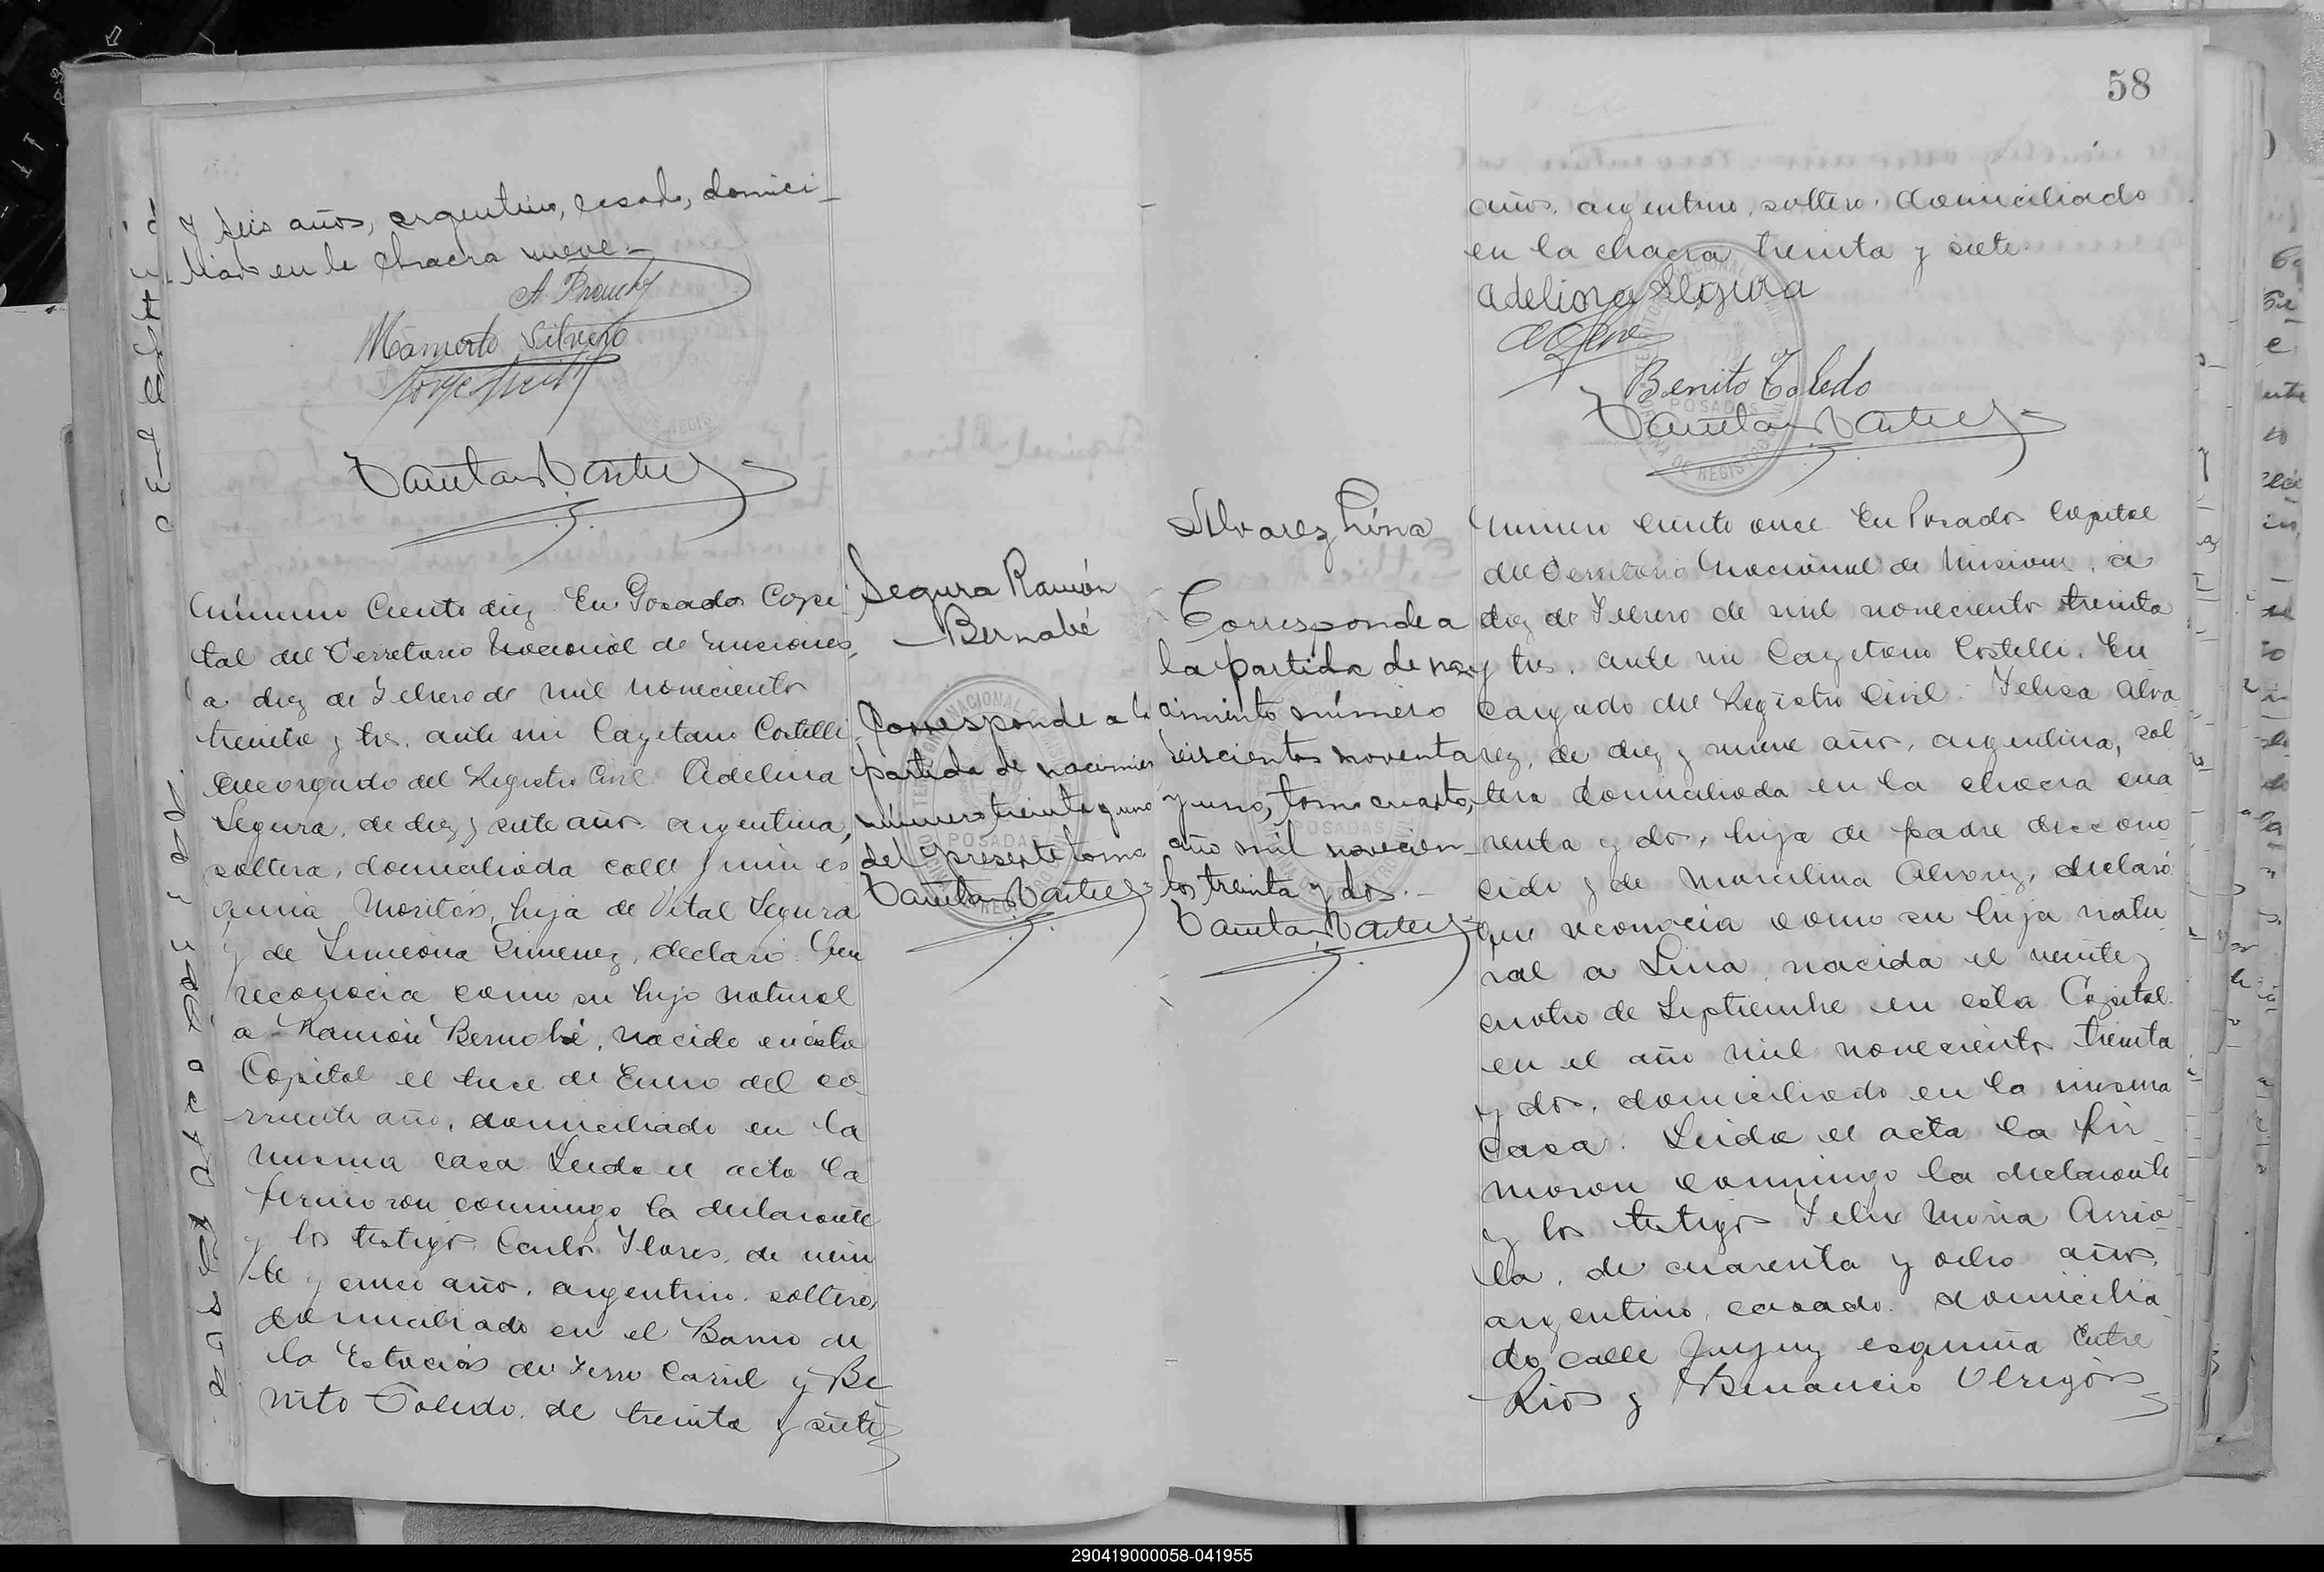 y seis años, argentino, casado, domici-
liado en la chacra nueve.-
Mamerto Silvero
Número Ciento diez. En Posadas Capi
tal del Territorio Nacional de Misiones,
a diez de Febrero de mil novecientos
treinta y tres, ante mi Cayetano Castelli
Encargado del Registro Civil Adelina
Segura, de diez y siete años argentina,
soltera, domiciliada calle Junin es
quina Moritán, hija de Vital Segura
y de Simeona Gimenez, declaró: Que
reconocia como su hijo natural
a Ramón Bernabé, nacido en ésta
Capital el trece de Enero del co
rriente año, domiciliado en la
misma casa Leida el acta la
firmaron conmigo la declarante
y los testigos Carlos Flores, de vein
te y cinco años, argentino, soltero,
domiciliado en el Barrio de
la Estación de Ferro Carril y Be
nito Toledo, de treinta y siete
Segura Ramón
Bernabé
Corresponde a la
partida de nacimien
número treinta y uno
del presente tomo
58
años, argentino, soltero, domiciliado
en la chacra treinta y siete.
Adelina Segura
Benito Toledo
POSADAS
Alvarez Lina
Corresponde a
la partida de na
cimiento número
seiscientos noventa
y uno, tomo cuarto,
año mil novecien-
tos treinta y dos.-
Número Ciento once En Posadas Capital
del Territorio Nacional de Misiones, a
diez de Febrero de mil novecientos treinta
y tres, ante mi Cayetano Castelli, En
cargado del Registro Civil: Felisa Alva
rez, de diez y nueve años, argentina, sol
tera domiciliada en la chacra cua
renta y dos, hija de padre descono
cido y de Marcelina Alvarez, declaró:
Que reconocia como su hija natu
ral a Lina, nacida el veinte y
cuatro de Septiembre en esta Capital
en el año mil novecientos treinta
y dos, domiciliado en la misma
casa. Leida el acta la fir
maron conmigo la declarante
y los testigos Felix Maria Arrio
la, de cuarenta y ocho años,
argentino, casado, domicilia
do calle Jujuy esquina Entre
Rios y Benancio Obregón
290419000058-041955